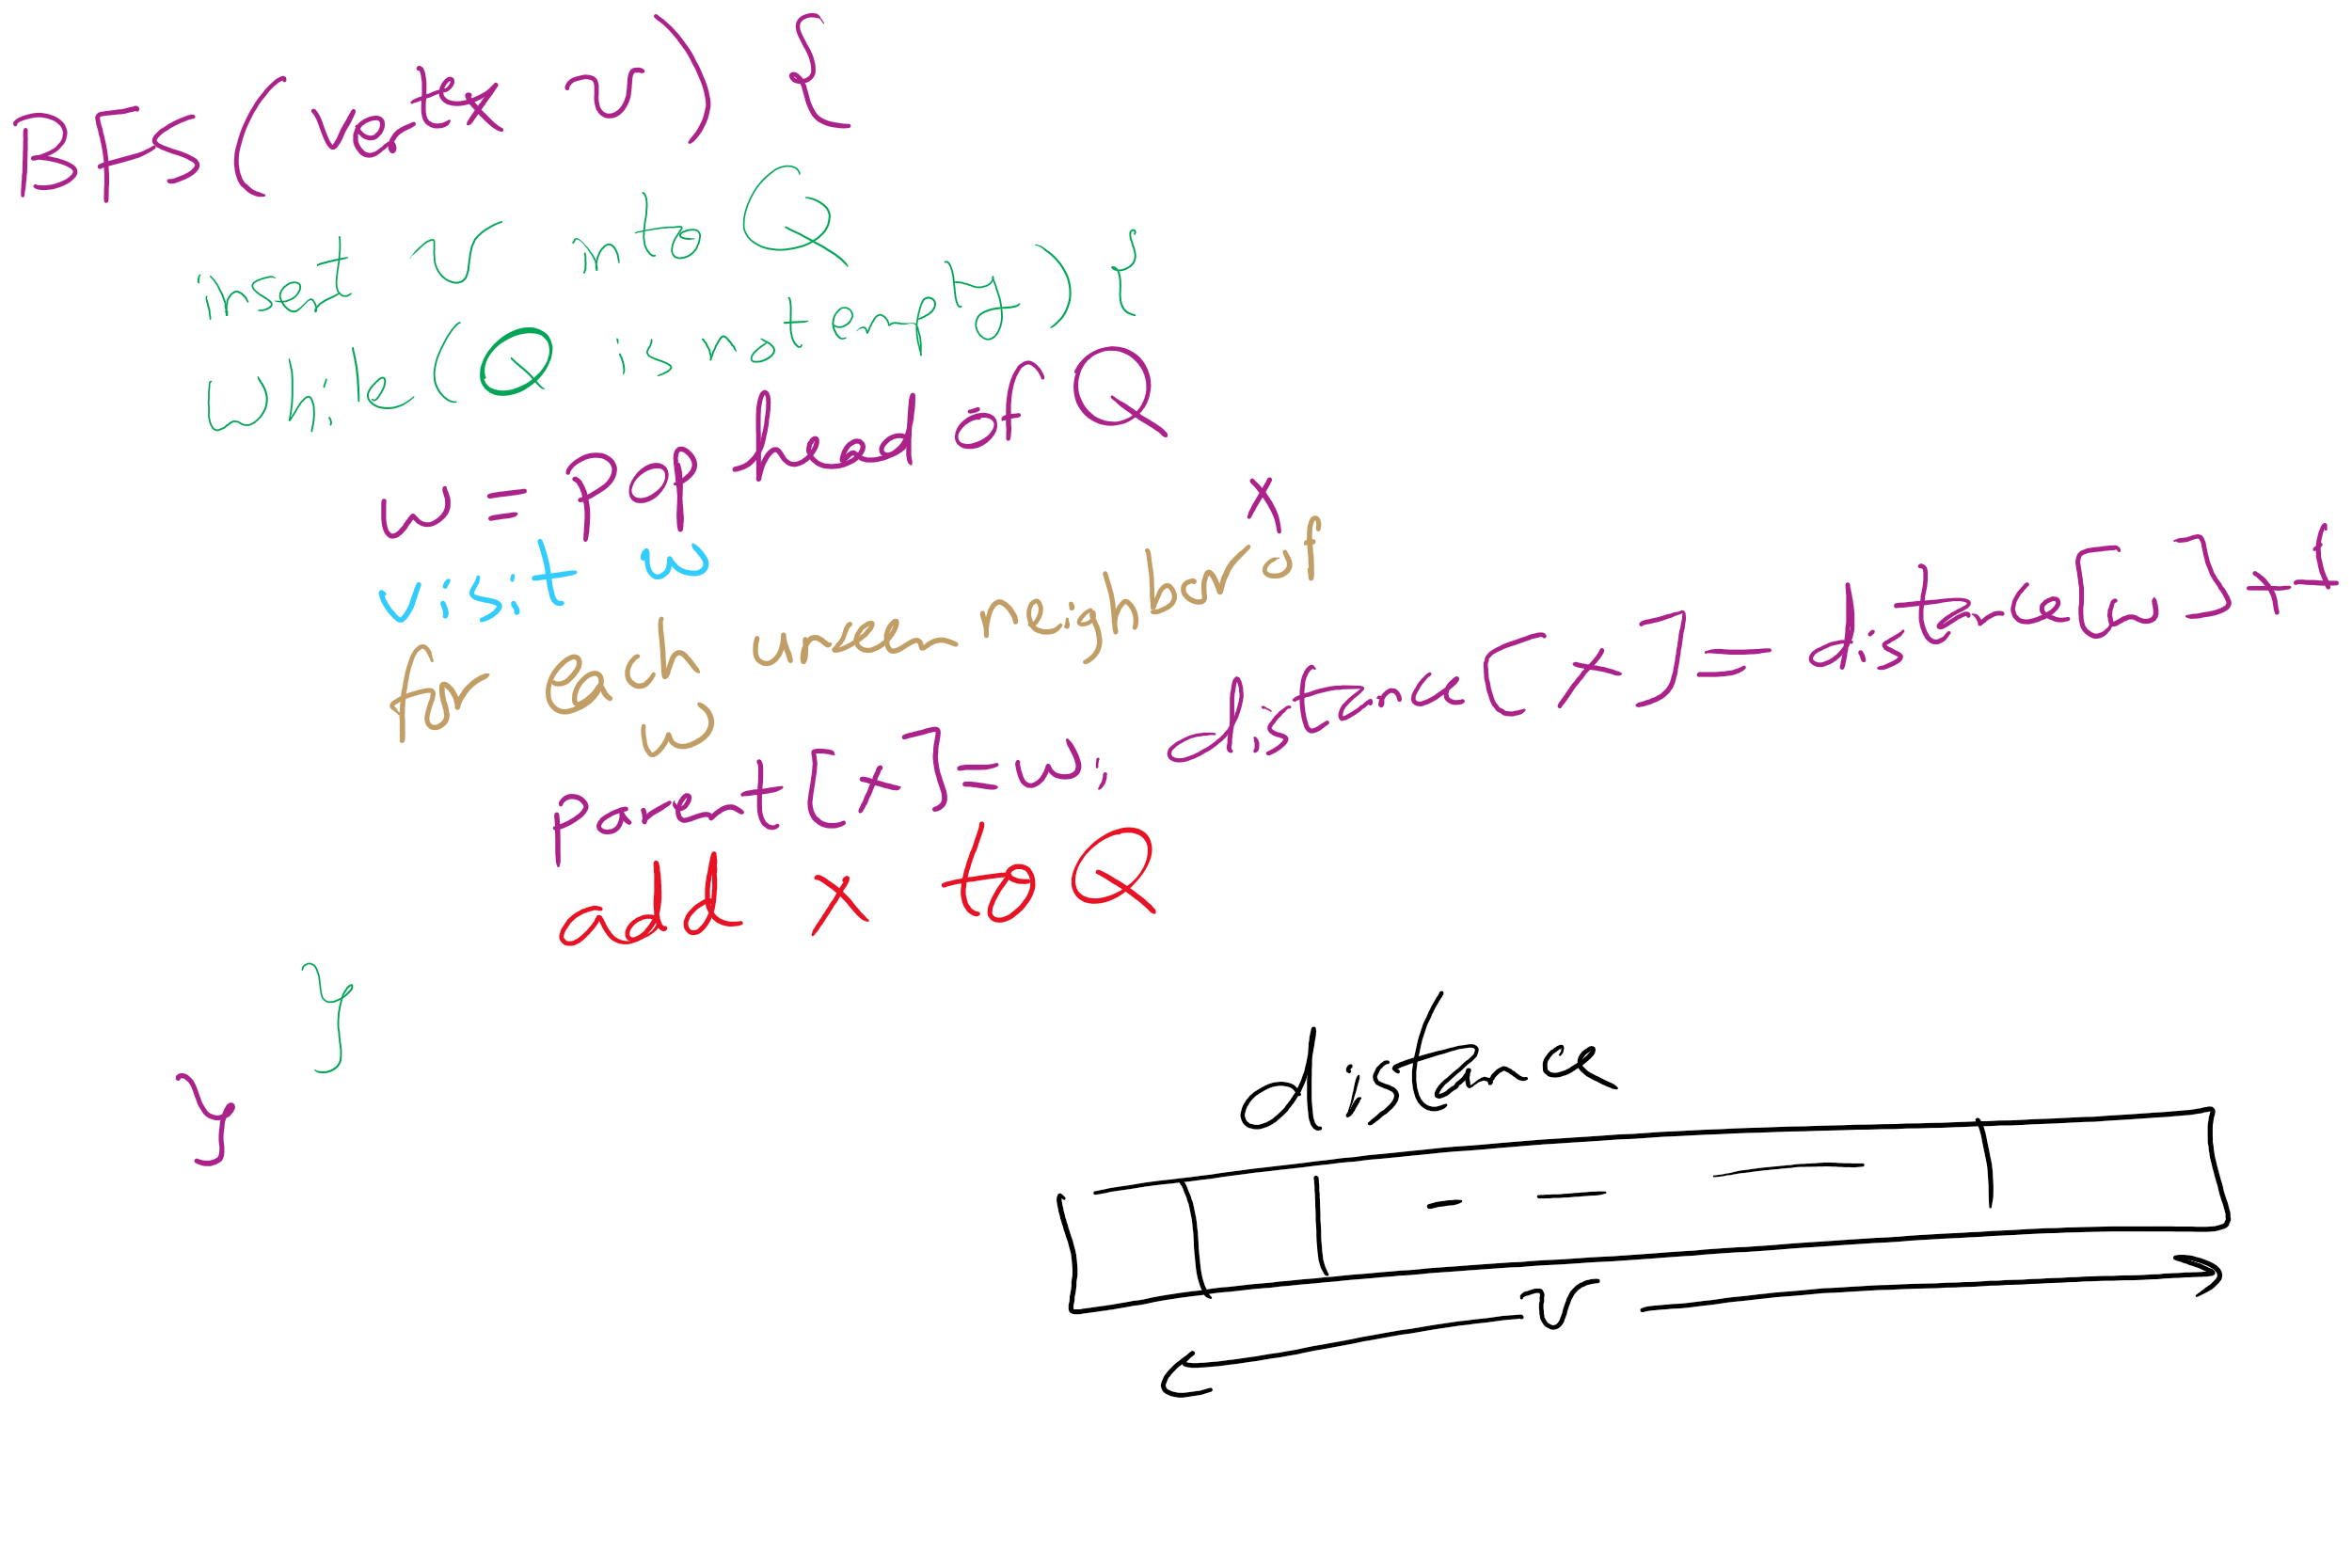 BFS(vertex v) {
insert v into Q
while(Q is not empty) {
w = pop head of Q
visit w
for each unseen neighbor x of
w
parent[x]=w; distance[x]=distance[w]+1
add x to Q
}
}
distance
v